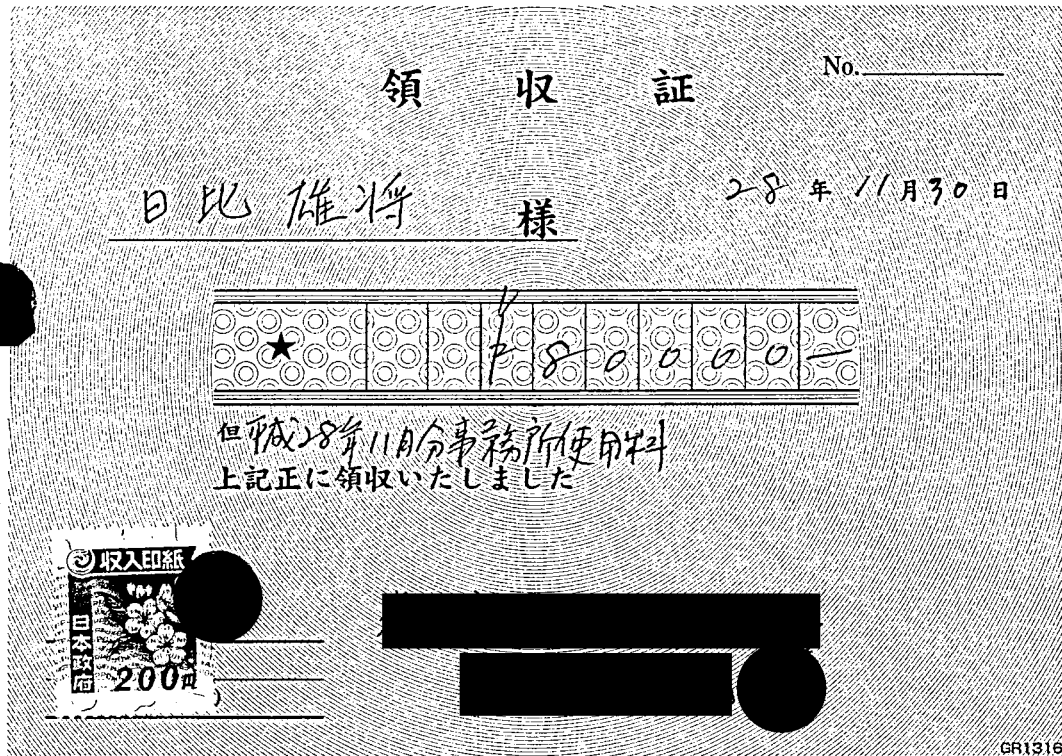 領収証
No.
日比 雄将 様
28年11月30日
★ ¥80000-
但平成28年11月分事務所使用料
上記正に領収いたしました
収入印紙
日本政府
200円
GR1316